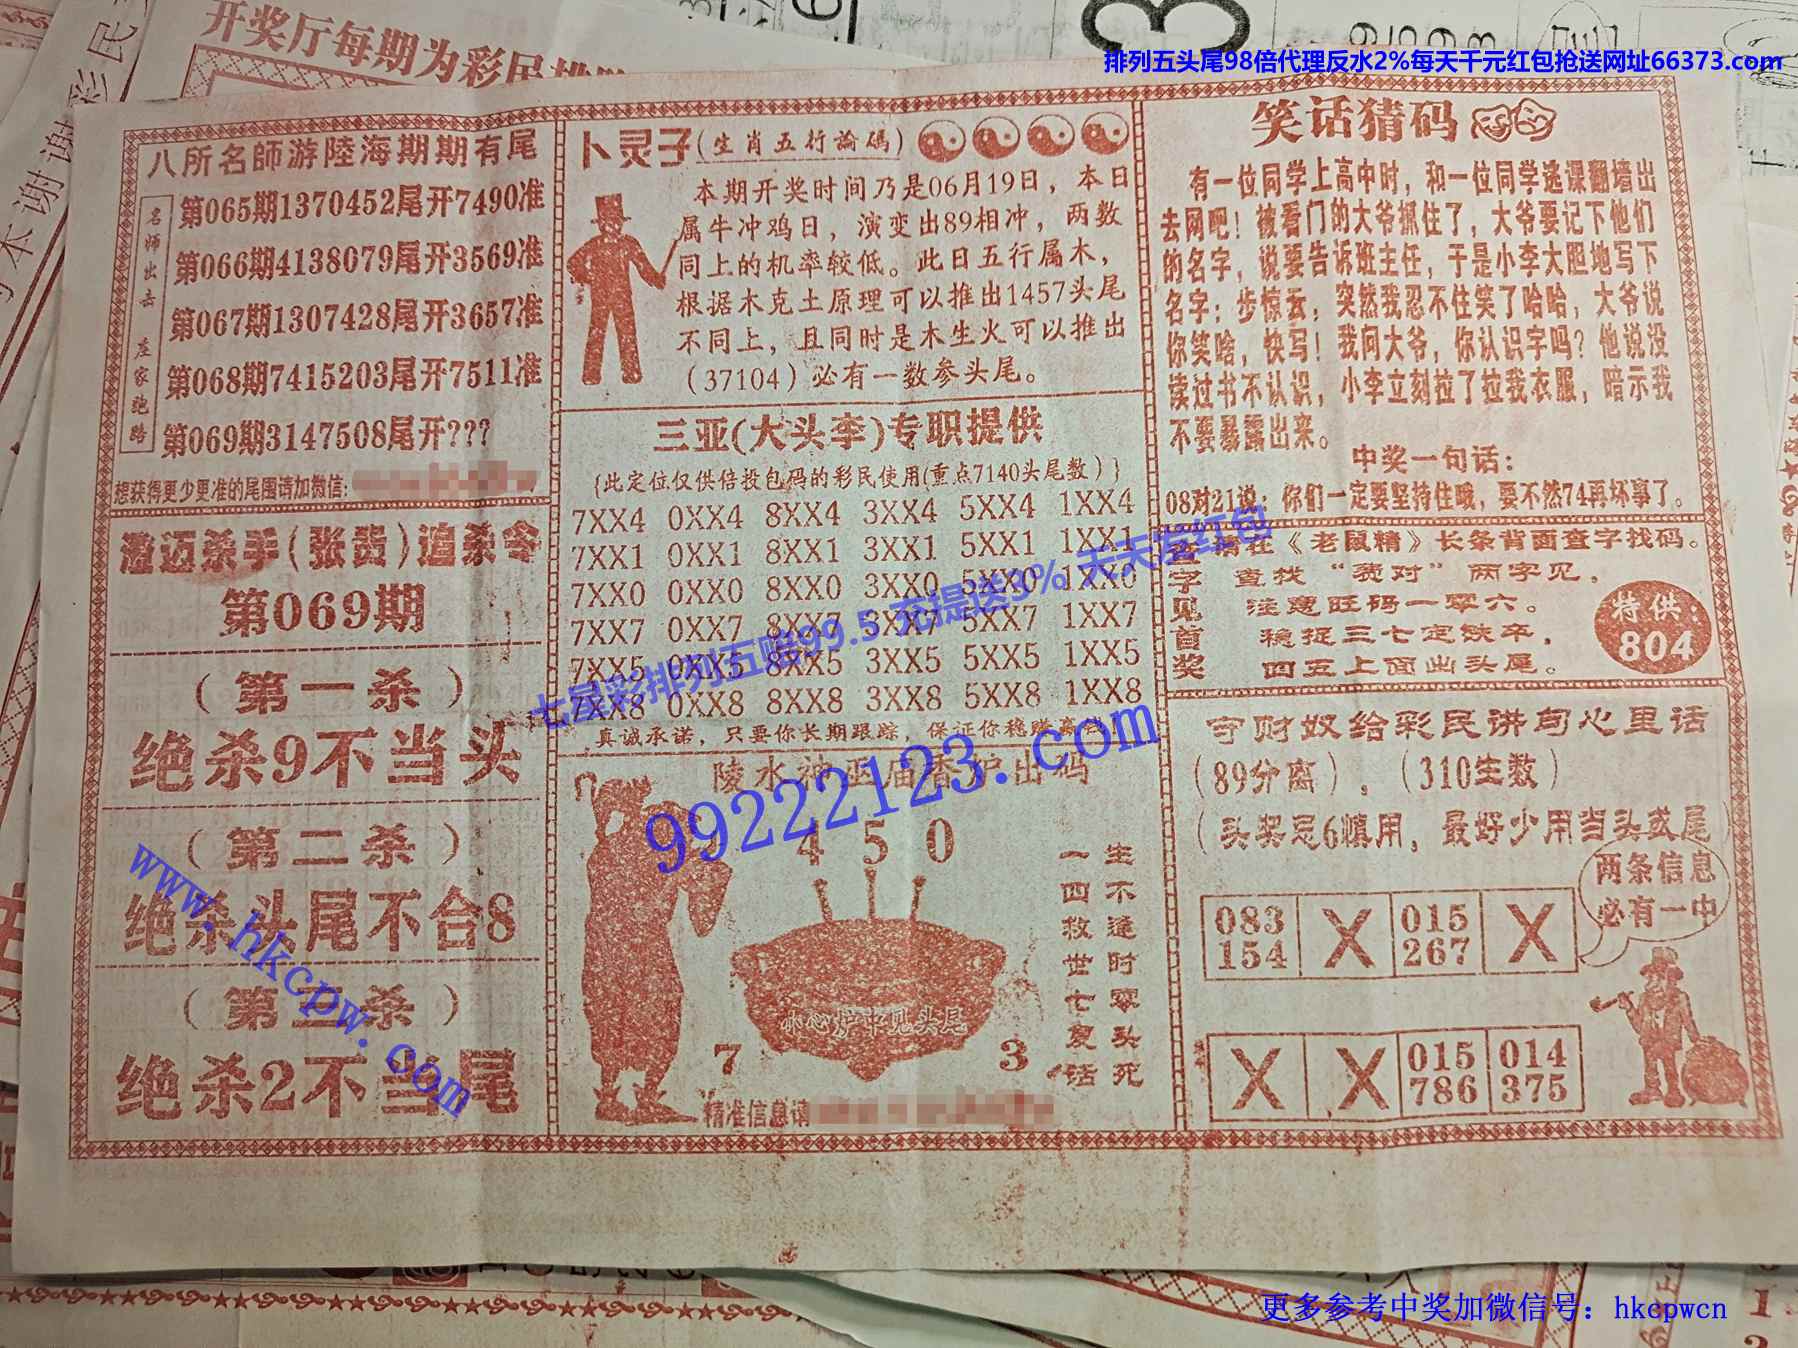 开奖厅每期为彩民
排列五头尾98倍代理反水2%每天千元红包抢送网址66373.com
八所名師游陸海期期有尾
名师出击 庄家跑路
第065期1370452尾开7490准
第066期4138079尾开3569准
第067期1307428尾开3657准
第068期7415203尾开7511准
第069期3147508尾开???
想获得更少更准的尾围请加微信:
澄迈杀手(张贵)追杀令
第069期
(第一杀)
绝杀9不当头
(第二杀)
绝杀头尾不合8
(第三杀)
绝杀2不当尾
www.hkcpw.com
卜灵子(生肖五行論碼)
本期开奖时间乃是06月19日，本日
属牛冲鸡日，演变出89相冲，两数
同上的机率较低。此日五行属木，
根据木克土原理可以推出1457头尾
不同上，且同时是木生火可以推出
(37104)必有一数参头尾。
三亚(大头李)专职提供
{此定位仅供倍投包码的彩民使用(重点7140头尾数)}
7XX4 0XX4 8XX4 3XX4 5XX4 1XX4
7XX1 0XX1 8XX1 3XX1 5XX1 1XX1
7XX0 0XX0 8XX0 3XX0 5XX0 1XX0
7XX7 0XX7 8XX7 3XX7 5XX7 1XX7
7XX5 0XX5 8XX5 3XX5 5XX5 1XX5
7XX8 0XX8 8XX8 3XX8 5XX8 1XX8
真诚承诺，只要你长期跟踪，保证你稳赚高钱
七星彩排列五赔99.5 充提送3% 天天发红包
99222123.com
陵水神巫庙香炉出码
4 5 0
小心炉中见头尾
7 3
生不逢时零头死
一四救世七夏活
精准信息请
笑话猜码
有一位同学上高中时，和一位同学逃课翻墙出
去网吧！被看门的大爷抓住了，大爷要记下他们
的名字，说要告诉班主任，于是小李大胆地写下
名字；步惊云，突然我忍不住笑了哈哈，大爷说
你笑啥，快写！我问大爷，你认识字吗？他说没
读过书不认识，小李立刻拉了拉我衣服，暗示我
不要暴露出来。
中奖一句话：
08对21说：你们一定要坚持住哦，要不然74再坏事了。
查字见首奖
请在《老鼠精》长条背面查字找码。
查找“贡对”两字见，
注意旺码一零六。
稳捉三七定铁卒，
四五上面出头尾。
特供：
804
守财奴给彩民讲句心里话
(89分离)，(310生数)
(头奖忌6慎用，最好少用当头或尾)
两条信息
必有一中
083 X 015 X
154 267
X X 015 014
786 375
更多参考中奖加微信号：hkcpwcn